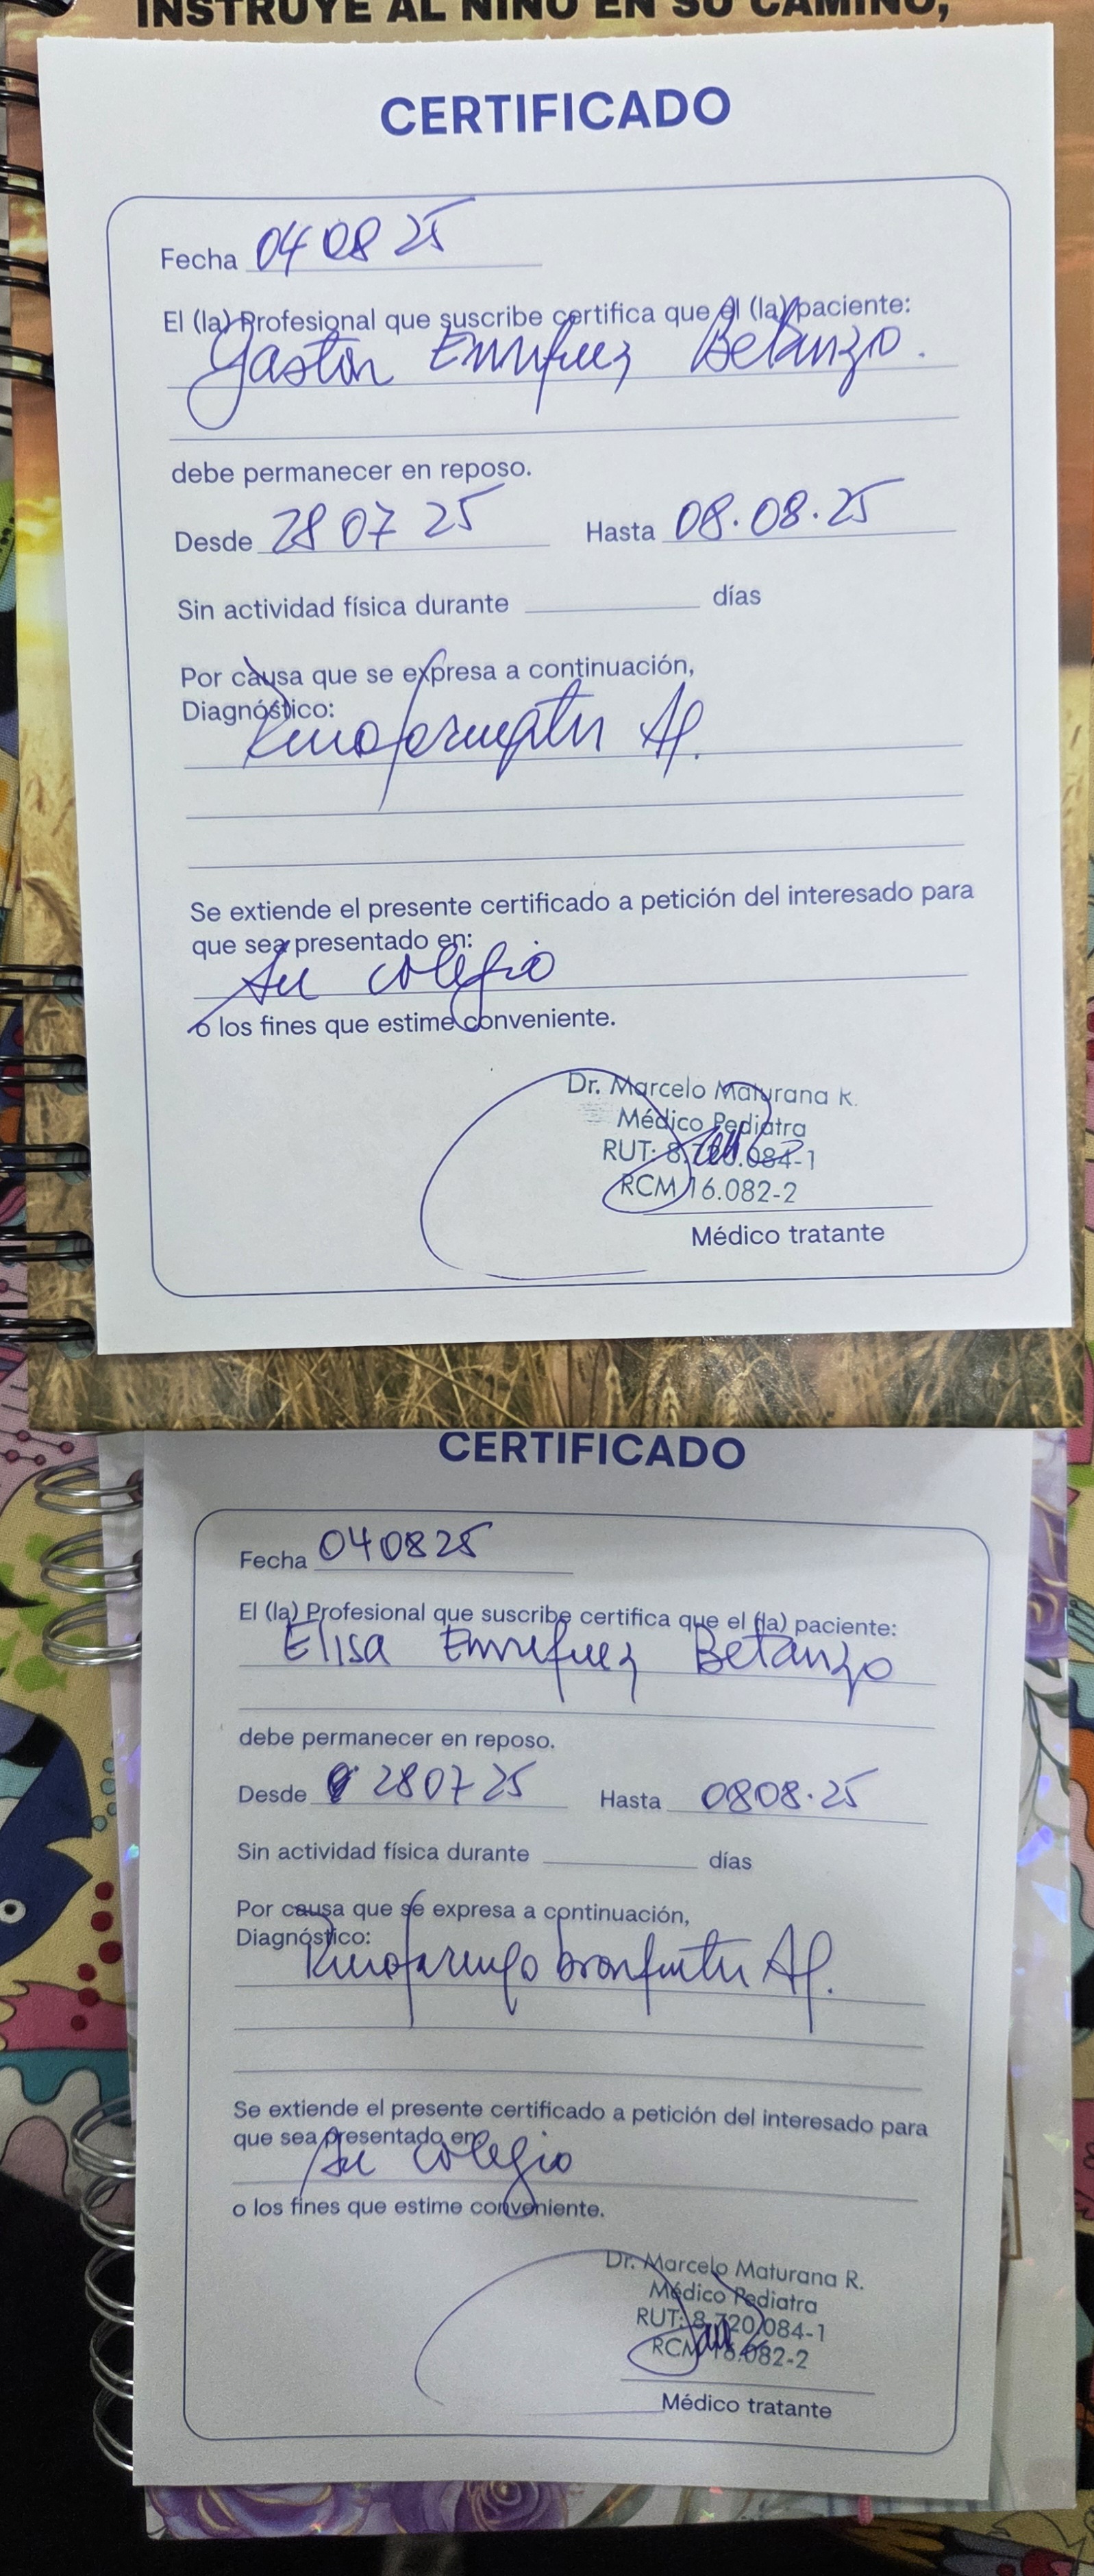 INSTRUYE AL NIÑO EN SU CAMINO,
CERTIFICADO
Fecha 04 08 25
El (la) Profesional que suscribe certifica que el (la) paciente:
Gastón Enriquez Betanzo.
debe permanecer en reposo.
Desde 28 07 25 Hasta 08.08.25
Sin actividad física durante días
Por causa que se expresa a continuación,
Diagnóstico:
Rinofaringitis Ag.
Se extiende el presente certificado a petición del interesado para
que sea presentado en:
Su colegio
o los fines que estime conveniente.
Dr. Marcelo Maturana R.
Médico Pediatra
RUT: 8.720.084-1
RCM 16.082-2
Médico tratante
CERTIFICADO
Fecha 040825
El (la) Profesional que suscribe certifica que el (la) paciente:
Elisa Enriquez Betanzo
debe permanecer en reposo.
Desde 280725 Hasta 0808.25
Sin actividad física durante días
Por causa que se expresa a continuación,
Diagnóstico:
Rinofaringo bronquitis Ag.
Se extiende el presente certificado a petición del interesado para
que sea presentado en:
Su colegio
o los fines que estime conveniente.
Dr. Marcelo Maturana R.
Médico Pediatra
RUT: 8.720.084-1
RCM 16.082-2
Médico tratante